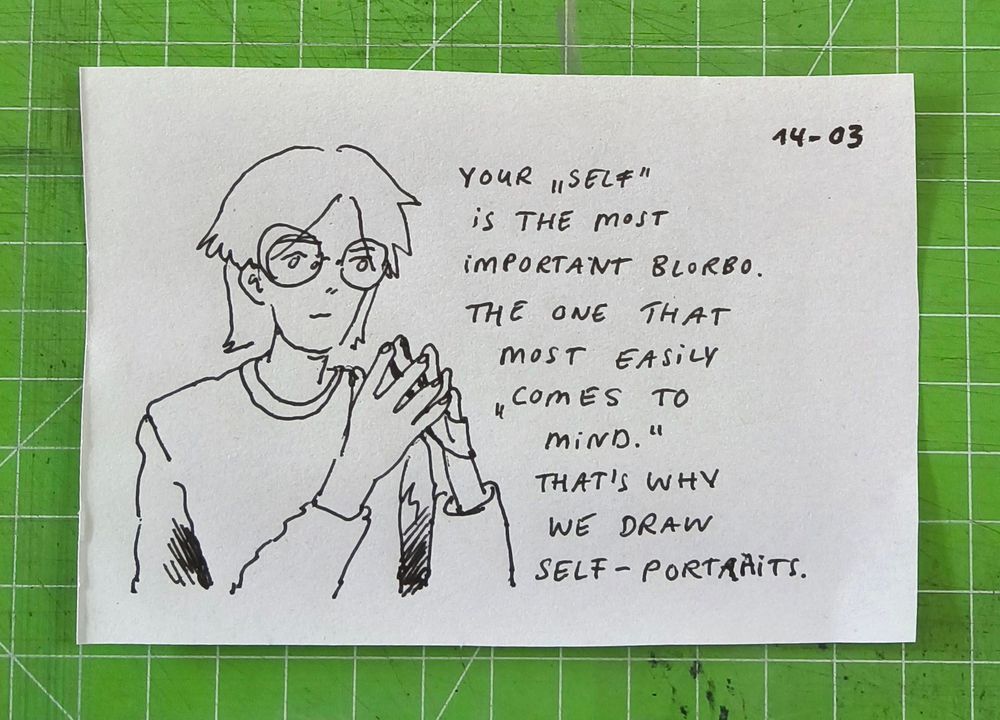 14-03
YOUR „SELF"
iS THE MOST
iMPORTANT BLORBO.
THE ONE THAT
MOST EASiLY
„COMES TO
MiND."
THAT'S WHY
WE DRAW
SELF-PORTRAiTS.